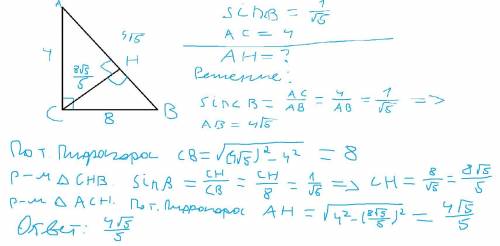 A
4√5
4
H
8√5/5
C
8
B
sin B = 1/√5
AC = 4
AH = ?
Решение:
sin ∠B = AC/AB = 4/AB = 1/√5 =>
AB = 4√5
По т. Пифагора CB = √((4√5)² - 4²) = 8
р-м △ CHB. sin B = CH/CB = CH/8 = 1/√5 => CH = 8/√5 = 8√5/5
р-м △ ACH. По т. Пифагора AH = √(4² - (8√5/5)²) = 4√5/5
Ответ: 4√5/5